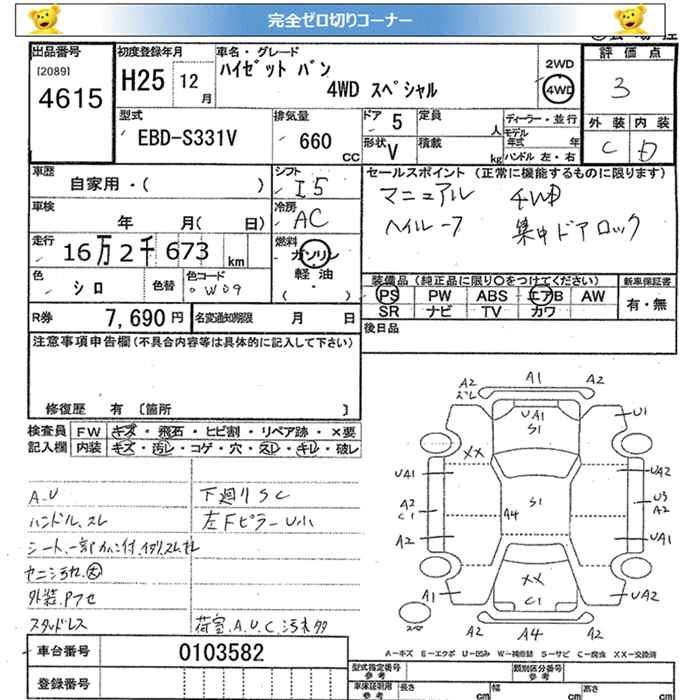 完全ゼロ切りコーナー
出品番号 初度登録年月 車名・グレード 評価点
[2089] ハイゼット バン 2WD
4615 H25 12月 4WD スペシャル 4WD 3
型式 排気量 ドア 5 定員 人 ディーラー・並行 外装 内装
EBD-S331V 660 CC 形状 V 積載 kg モデル年式 年 C D
ハンドル 左・右
車歴 シフト セールスポイント (正常に機能するものに限ります)
自家用・( ) I5 マニュアル 4WD
車検 冷房
年 月( 日) AC 集中ドアロック
走行 燃料
16万2千673km ガソリン
軽油
( ・ )
色 シロ 色替 色コード W09 装備品 (純正品に限り○をつけてください) 新車保証書
PS PW ABS エアB AW 有・無
SR ナビ TV カワ
R券 7,690円 名変通知期限 月 日 後日品
注意事項申告欄(不具合内容等は具体的に記入して下さい)
修復歴 有 [箇所 ]
検査員 FW キズ・飛石・ヒビ割・リペア跡・×要
記入欄 内装 キズ・汚レ・コゲ・穴・スレ・キレ・破レ
A.U 下廻りSC
ハンドル.スレ 左Fピラー U小
ヤニ汚レ 大
スタッドレス 荷室.A.U.C.汚れ多
A2 スレ A1 A2
UA1
S1
U1
XX
UA1 UA2
A2 C1 A4 S1 U3 A2
A2 UA1
XX
A1 C1 UA2
A2 A4 A2
A-キズ E-エクボ U-凹み W-補修跡 S-サビ C-腐食 XX-交換済
車台番号 0103582
登録番号
型式指定番号 参考 類別区分番号 参考
車体証明用 参考 長さ cm 幅 cm 高さ cm